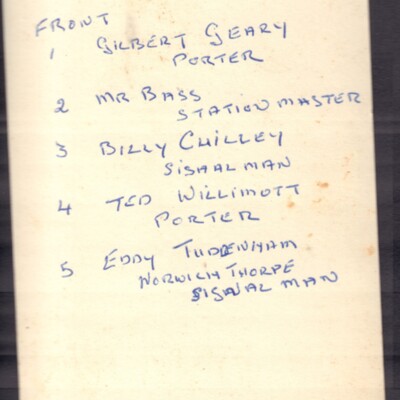 FRONT
1 GILBERT GEARY
PORTER
2 MR BASS
STATION MASTER
3 BILLY CHILLEY
SIGNAL MAN
4 TED WILLIMOTT
PORTER
5 EDDY TUDDENHAM
NORWICH THORPE
SIGNAL MAN